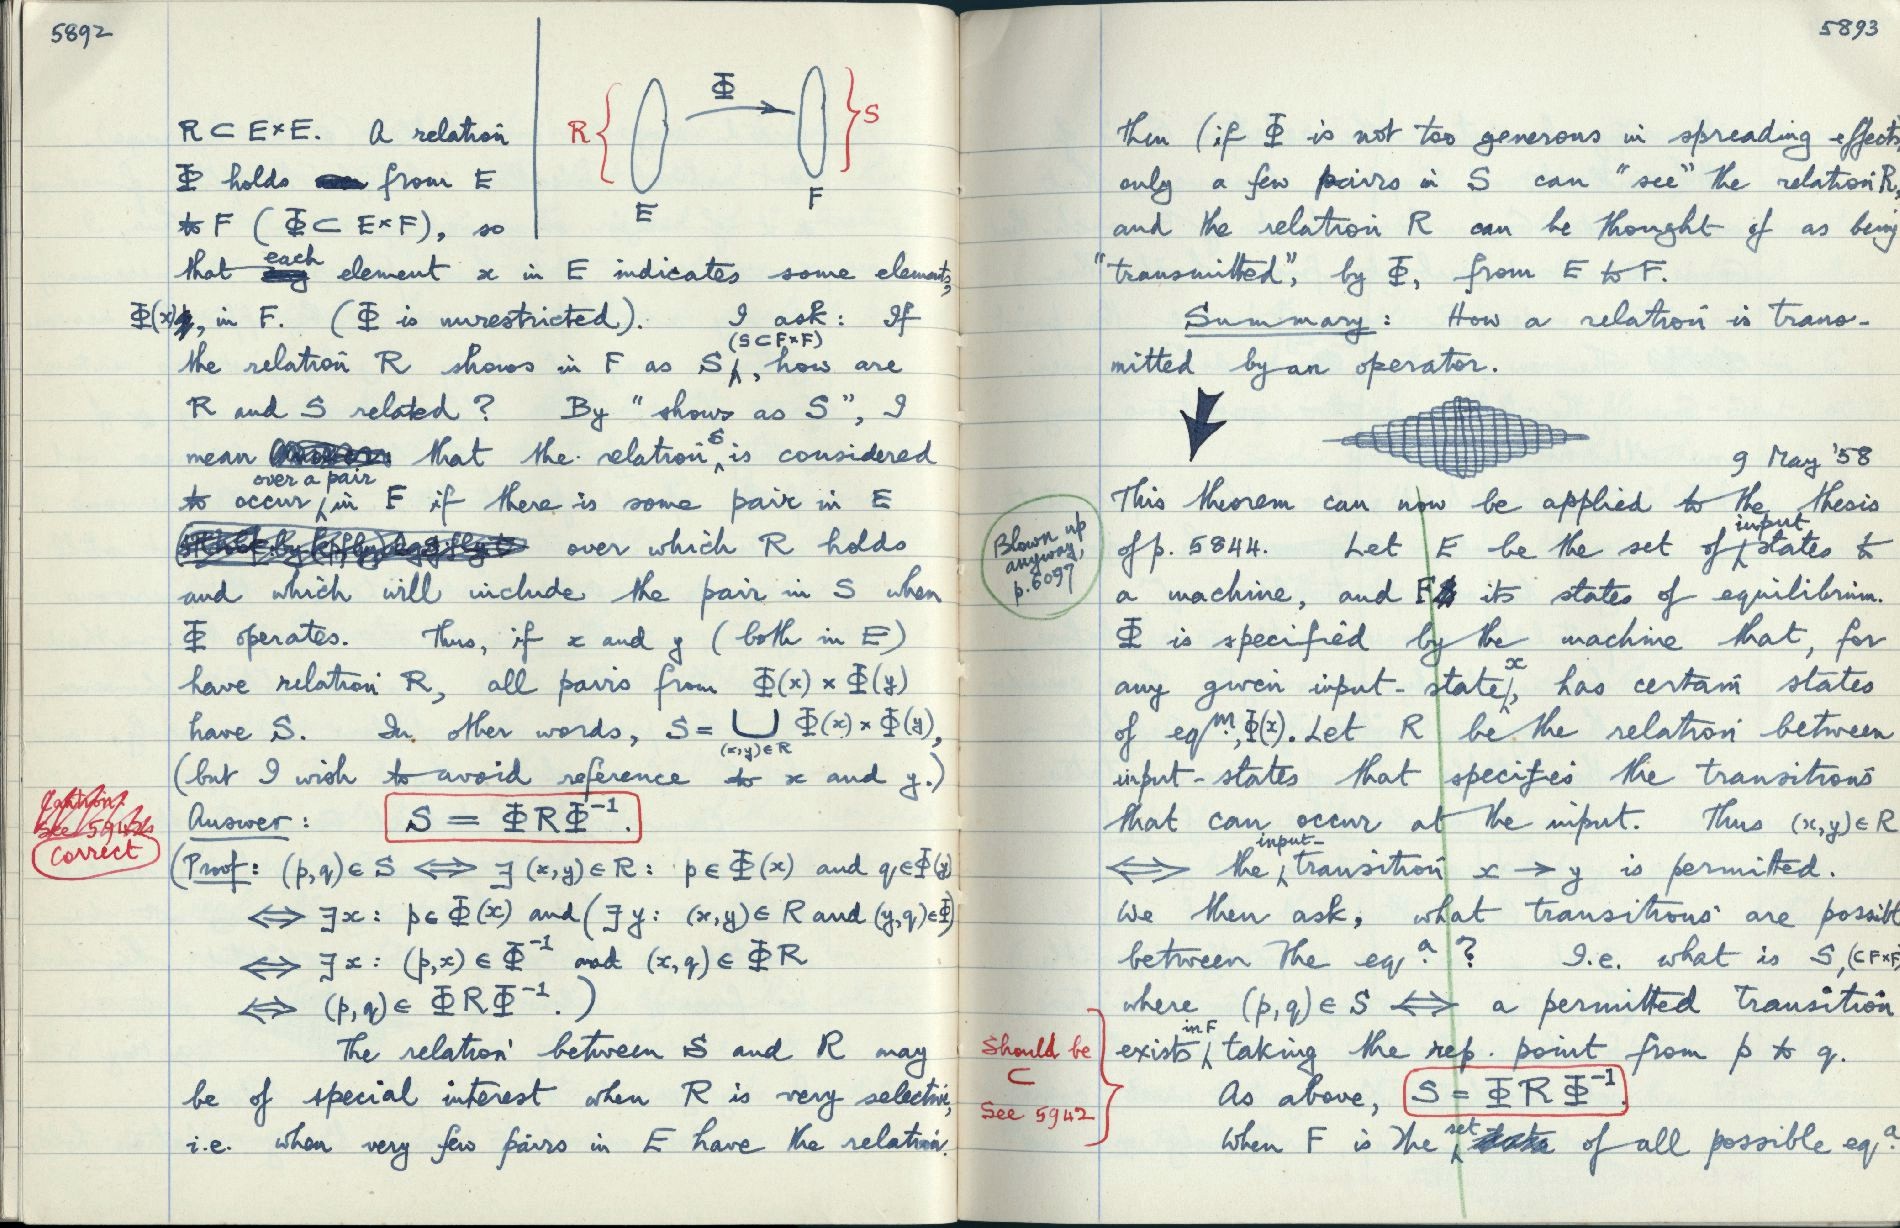 5892
R ⊂ E×E. A relation
Φ holds from E
to F (Φ ⊂ E×F), so
that each element x in E indicates some elements,
Φ(x), in F. (Φ is unrestricted). I ask: If
the relation R shows in F as S (S⊂F×F), how are
R and S related? By "shows as S", I
mean that the relation S is considered
to occur over a pair in F if there is some pair in E
over which R holds
and which will include the pair in S when
Φ operates. Thus, if x and y (both in E)
have relation R, all pairs from Φ(x) × Φ(y)
have S. In other words, S = ⋃ Φ(x) × Φ(y),
(x,y)∈R
(but I wish to avoid reference to x and y.)
Answer: S = ΦRΦ⁻¹.
(Proof: (p,q)∈S ⟺ ∃(x,y)∈R: p∈Φ(x) and q∈Φ(y)
⟺ ∃x: p∈Φ(x) and (∃y: (x,y)∈R and (y,q)∈Φ)
⟺ ∃x: (p,x)∈Φ⁻¹ and (x,q)∈ΦR
⟺ (p,q)∈ΦRΦ⁻¹.)
The relation between S and R may
be of special interest when R is very selective,
i.e. when very few pairs in E have the relation.
R
Φ
S
E
F
correct
5893
then (if Φ is not too generous in spreading effects,
only a few pairs in S can "see" the relation R,
and the relation R can be thought of as being
"transmitted", by Φ, from E to F.
Summary: How a relation is trans-
mitted by an operator.
9 May '58
This theorem can now be applied to the thesis
of p. 5844. Let E be the set of input states to
a machine, and F its states of equilibrium.
Φ is specified by the machine that, for
any given input-state x, has certain states
of eqᵐ, Φ(x). Let R be the relation between
input-states that specifies the transitions
that can occur at the input. Thus (x,y)∈R
⟺ the input-transition x → y is permitted.
We then ask, what transitions are possible
between the eq.ᵃ? I.e. what is S, (⊂F×F)
where (p,q)∈S ⟺ a permitted transition
exists in F, taking the rep. point from p to q.
As above, S = ΦRΦ⁻¹.
When F is the set of all possible eq.ᵃ
Blown up
anyway,
p.6097
Should be
⊂
See 5942